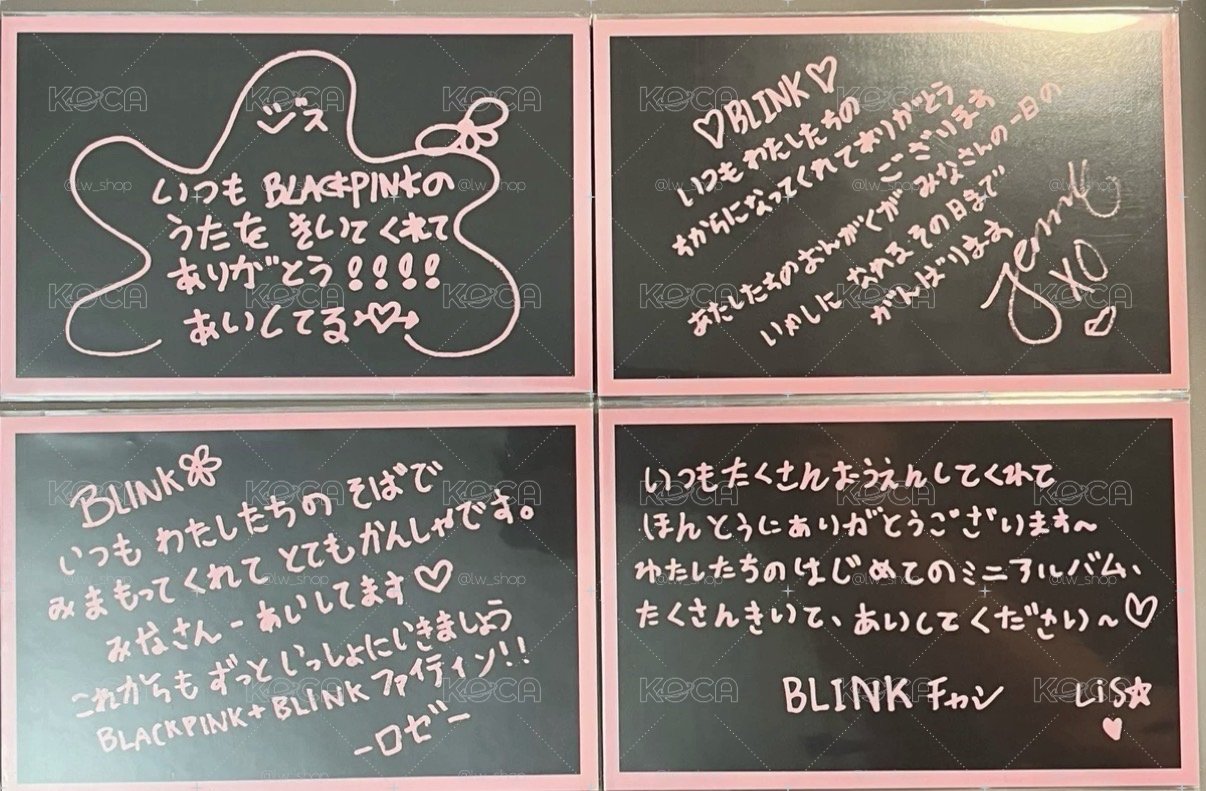 ジス
いつも BLACKPINKの
うたを きいてくれて
ありがとう!!!!
あいしてる
♡BLINK♡
いつも わたしたちの
ちからになってくれて ありがとう
ございます
わたしたちのおんがくが みなさんの一日の
いやしに なれる その日まで
がんばります
Jennie
XO
BLINK
いつも わたしたちの そばで
みまもってくれて とても かんしゃです。
みなさん-あいしてます♡
これからも ずっと いっしょにいきましょう
BLACKPINK+BLINK ファイティン!!
-ロゼ-
いつもたくさんおうえんしてくれて
ほんとうにありがとうございます~
わたしたちのはじめてのミニアルバム、
たくさんきいて、あいしてください~♡
BLINK チャン
LiS☆
KOCA
@lw_shop